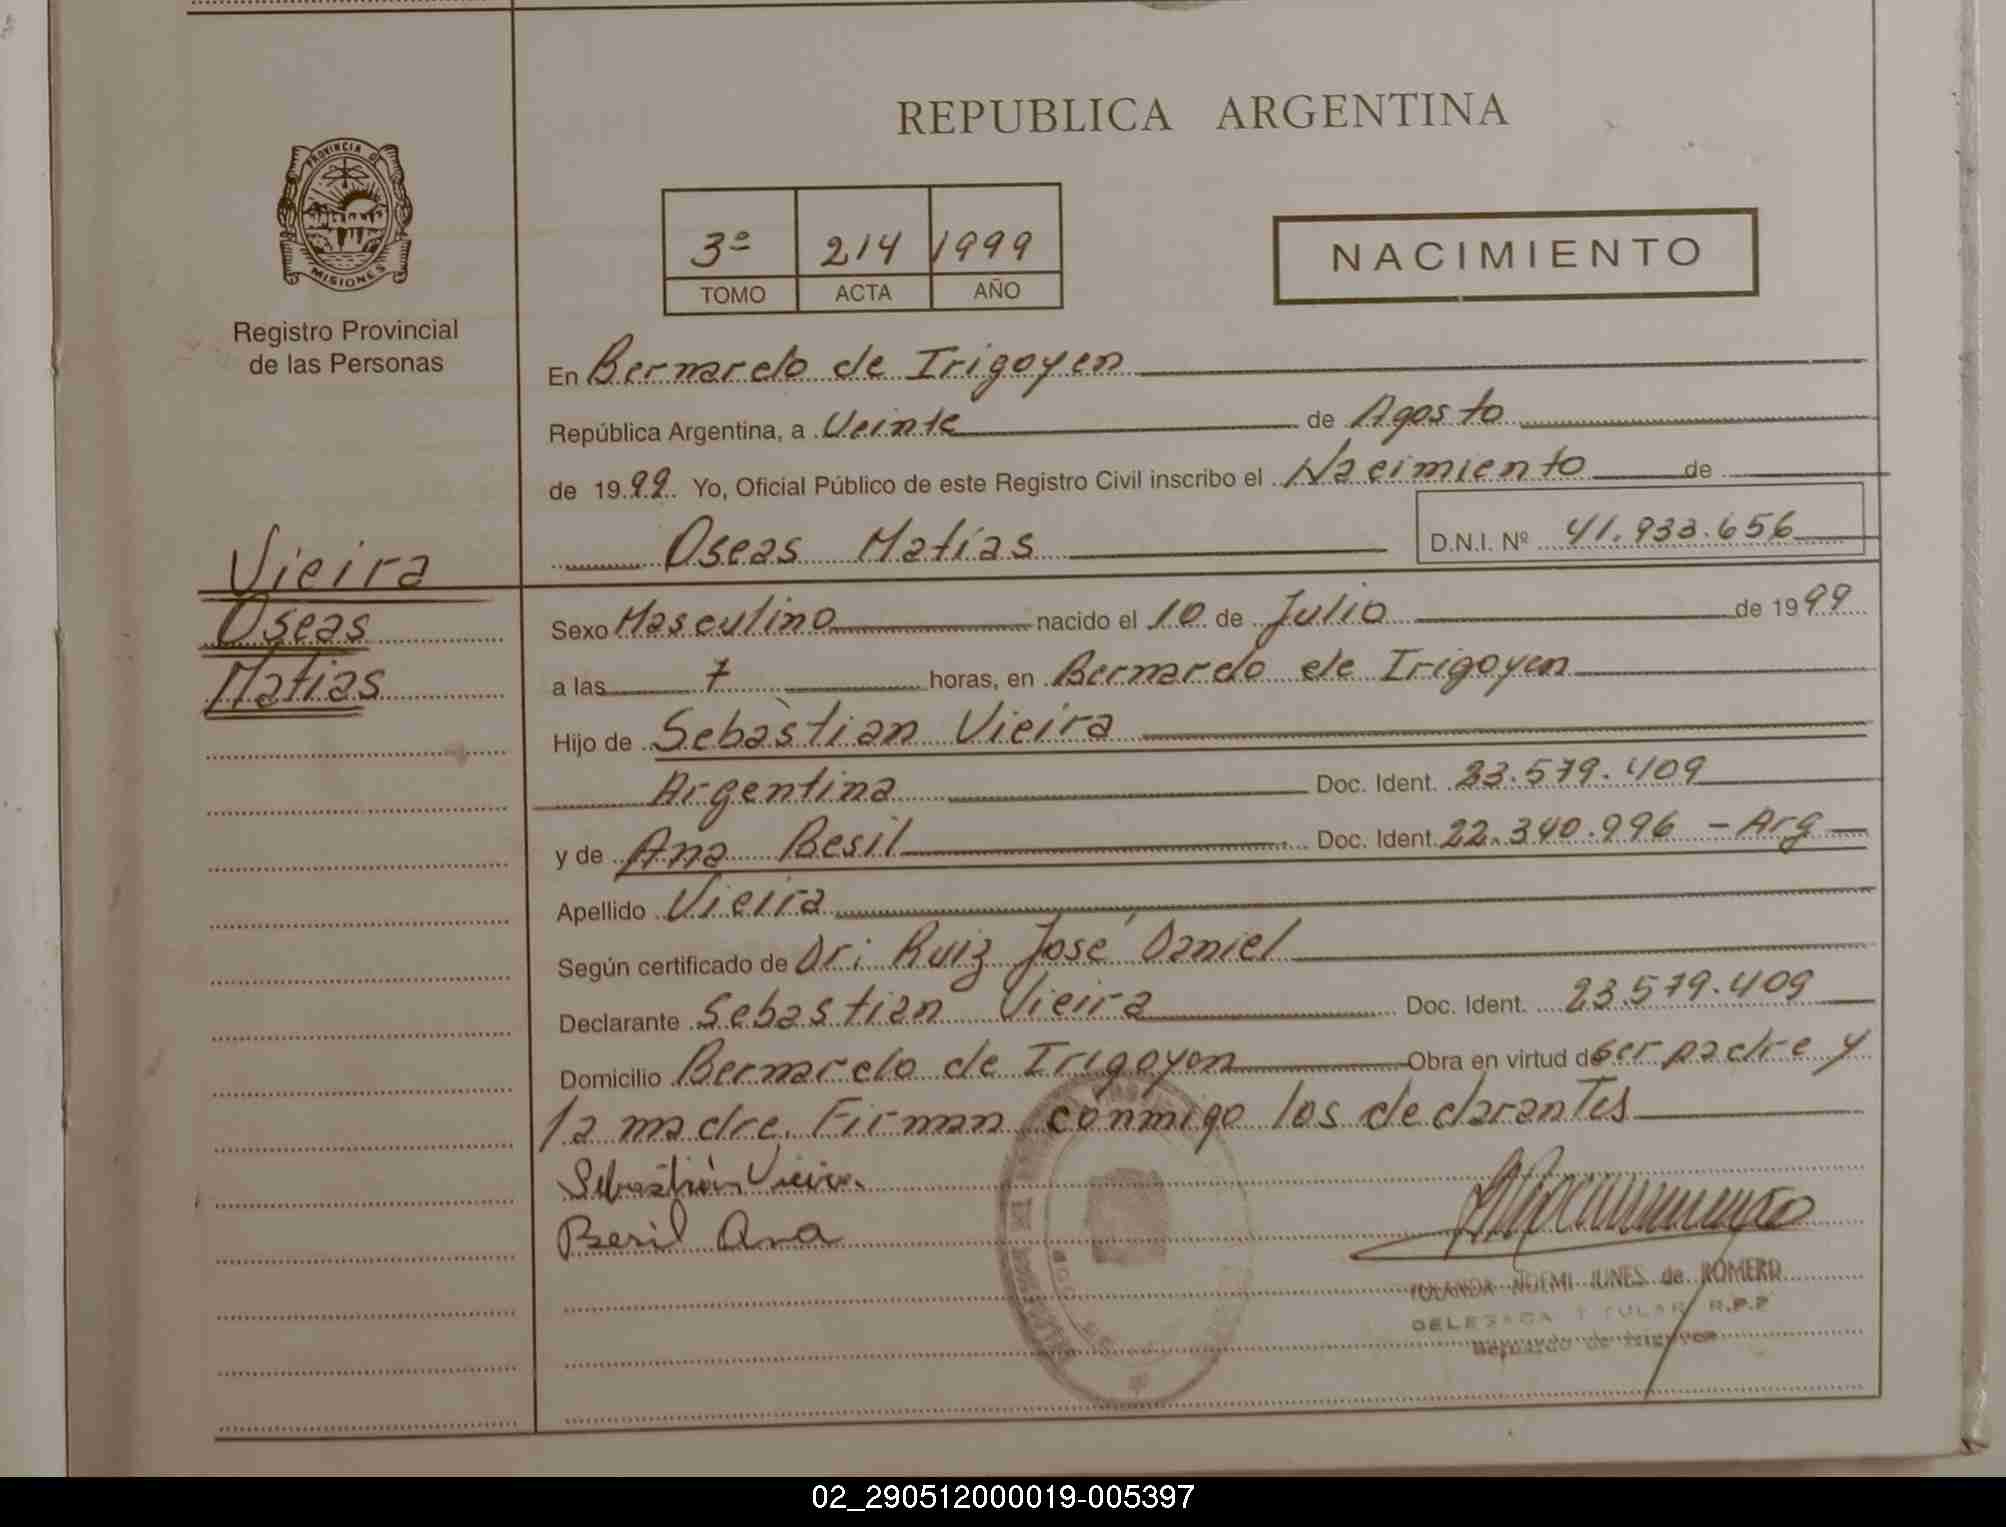 REPUBLICA ARGENTINA
PROVINCIA DE
MISIONES
Registro Provincial
de las Personas
3º 214 1999
TOMO ACTA AÑO
NACIMIENTO
En Bernardo de Irigoyen
República Argentina, a Veinte de Agosto
de 1999 Yo, Oficial Público de este Registro Civil inscribo el Nacimiento de
Oseas Matías D.N.I. Nº 41.933.656
Vieira
Oseas
Matias
Sexo Masculino nacido el 10 de Julio de 1999
a las 7 horas, en Bernardo de Irigoyen
Hijo de Sebastian Vieira
Argentina Doc. Ident. 23.579.409
y de Ana Besil Doc. Ident. 22.340.996 - Arg
Apellido Vieira
Según certificado de Dr: Ruiz José Daniel
Declarante Sebastian Vieira Doc. Ident. 23.579.409
Domicilio Bernardo de Irigoyen Obra en virtud de ser padre y
la madre. Firman conmigo los declarantes
Sebastián Vieira
Besil Ana
YOLANDA NOEMI de ROMERO
DELEGADA TITULAR R.P.P
Bernardo de Irigoyen
02_290512000019-005397